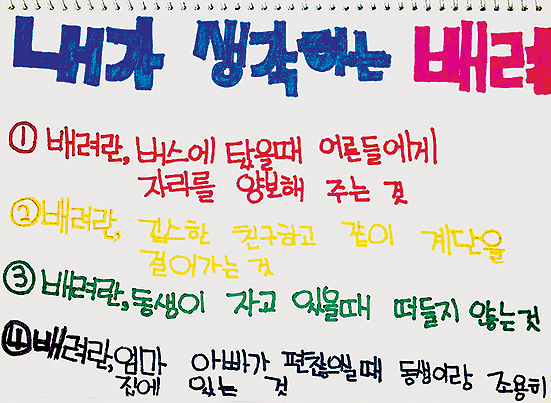 내가 생각하는 배려
① 배려란, 버스에 탔을때 어른들에게
자리를 양보해 주는 것
② 배려란, 깁스한 친구하고 같이 계단을
걸어가는 것
③ 배려란, 동생이 자고 있을때 떠들지 않는것
④ 배려란, 엄마 아빠가 편찮으실 때 동생이랑 조용히
집에 있는 것